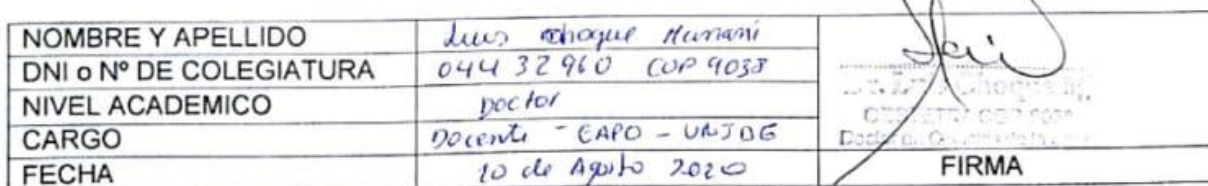 NOMBRE Y APELLIDO Luis Choque Mamani
DNI o Nº DE COLEGIATURA 04432960 COP 9038
NIVEL ACADEMICO Doctor
CARGO Docente - EAPO - UNJBG
FECHA 10 de Agosto 2020
Choque M.
FIRMA